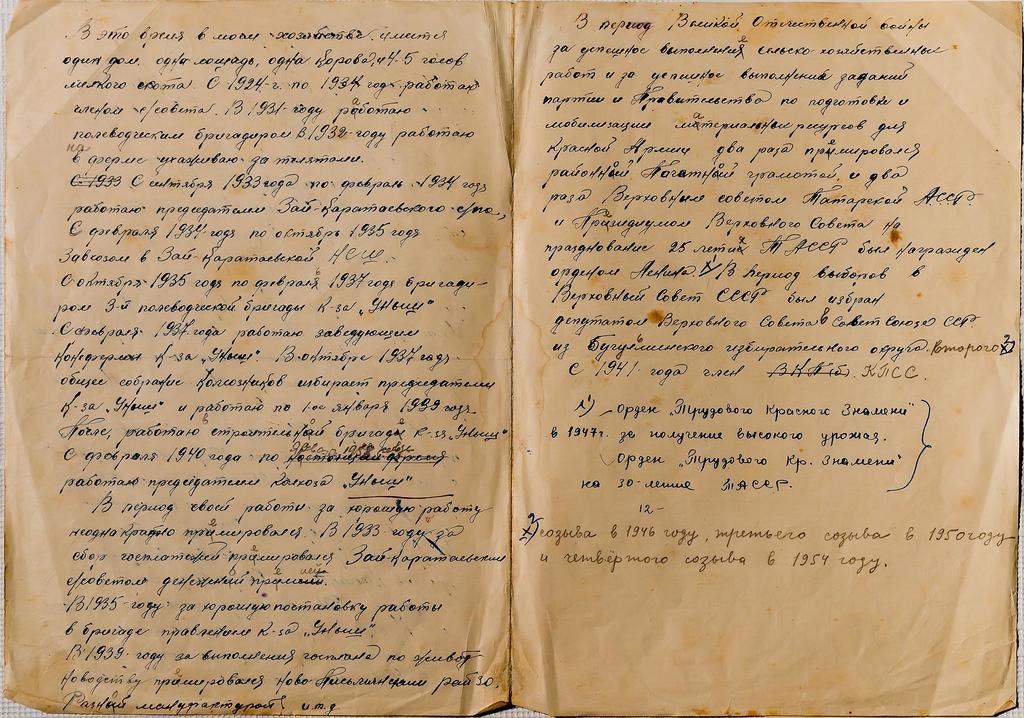 В это время в моем хозяйстве имеится
один дом, одна лошадь, одна корова, и 4-5 голов
мелкого скота. С 1924-г. по 1934 год работаю
членом с/совета. В 1931-году работаю
полеводческим бригадиром. В 1932-году работаю
на
в ферме ухаживаю за телятами.
С 1933 С сентября 1933 года по февраль 1934 года
работаю председателем Зай-Каратаевского с/по.,
С февраля 1934 года по октябрь 1935 года
Завхозом в Зай-Каратаевской НСШ.
С октября 1935 года по февраля 1937 года бригади-
ром 3-й полеводческой бригады к-за „Уныш"
С февраля 1937 года работаю заведующим
конефермы к-за „Уныш". В октябре 1937 года
общее собрание колхозников избирает председателем
к-за „Уныш" и работаю по 1-ое января 1939 года
После, работаю строительной бригаде к-за „Уныш"
С февраля 1940 года по настоящее время
работаю председателем колхоза „Уныш"
В период своей работы за хорошую работу
неоднократно примировался. В 1933-году за
сбор госплатежей примировался Зай-Каратаевским
с/советом денежной премией.
В 1935-году за хорошую постановку работы
в бригаде правлением к-за „Уныш".
В 1939-году за выполнения госплана по живот
новодству примировался Ново-Письмянским рай ЗО.
Разный мануфактурой и.т.д
В период Великой Отечественной войны
за успешное выполнение сельско-хозяйственных
работ и за успешное выполнения заданий
партии и Правительства по подготовки и
мобилизации материальных ресурсов для
Красной Армии два раза примировался
районный Почетный грамотой, и два
раза Верховным советом Татарской АССР.
и Призидиумом Верховного Совета на
празднование 25 летия ТАССР был награжден
орденом Ленина. х) В период выборов в
Верховный Совет СССР был избран
депутатом Верховного Совета в Совет Союза ССР
из Бугульминского избирательного округа. второго 2)
С 1941 года член ВКП(б). КПСС.
х) Орден „Трудового Красного Знамени"
в 1947г. за получение высокого урожая.
Орден „Трудового Кр. Знамени"
на 30-летие ТАССР.
12-
2) созыва в 1946 году, третьего созыва в 1950 году
и четвёртого созыва в 1954 году.